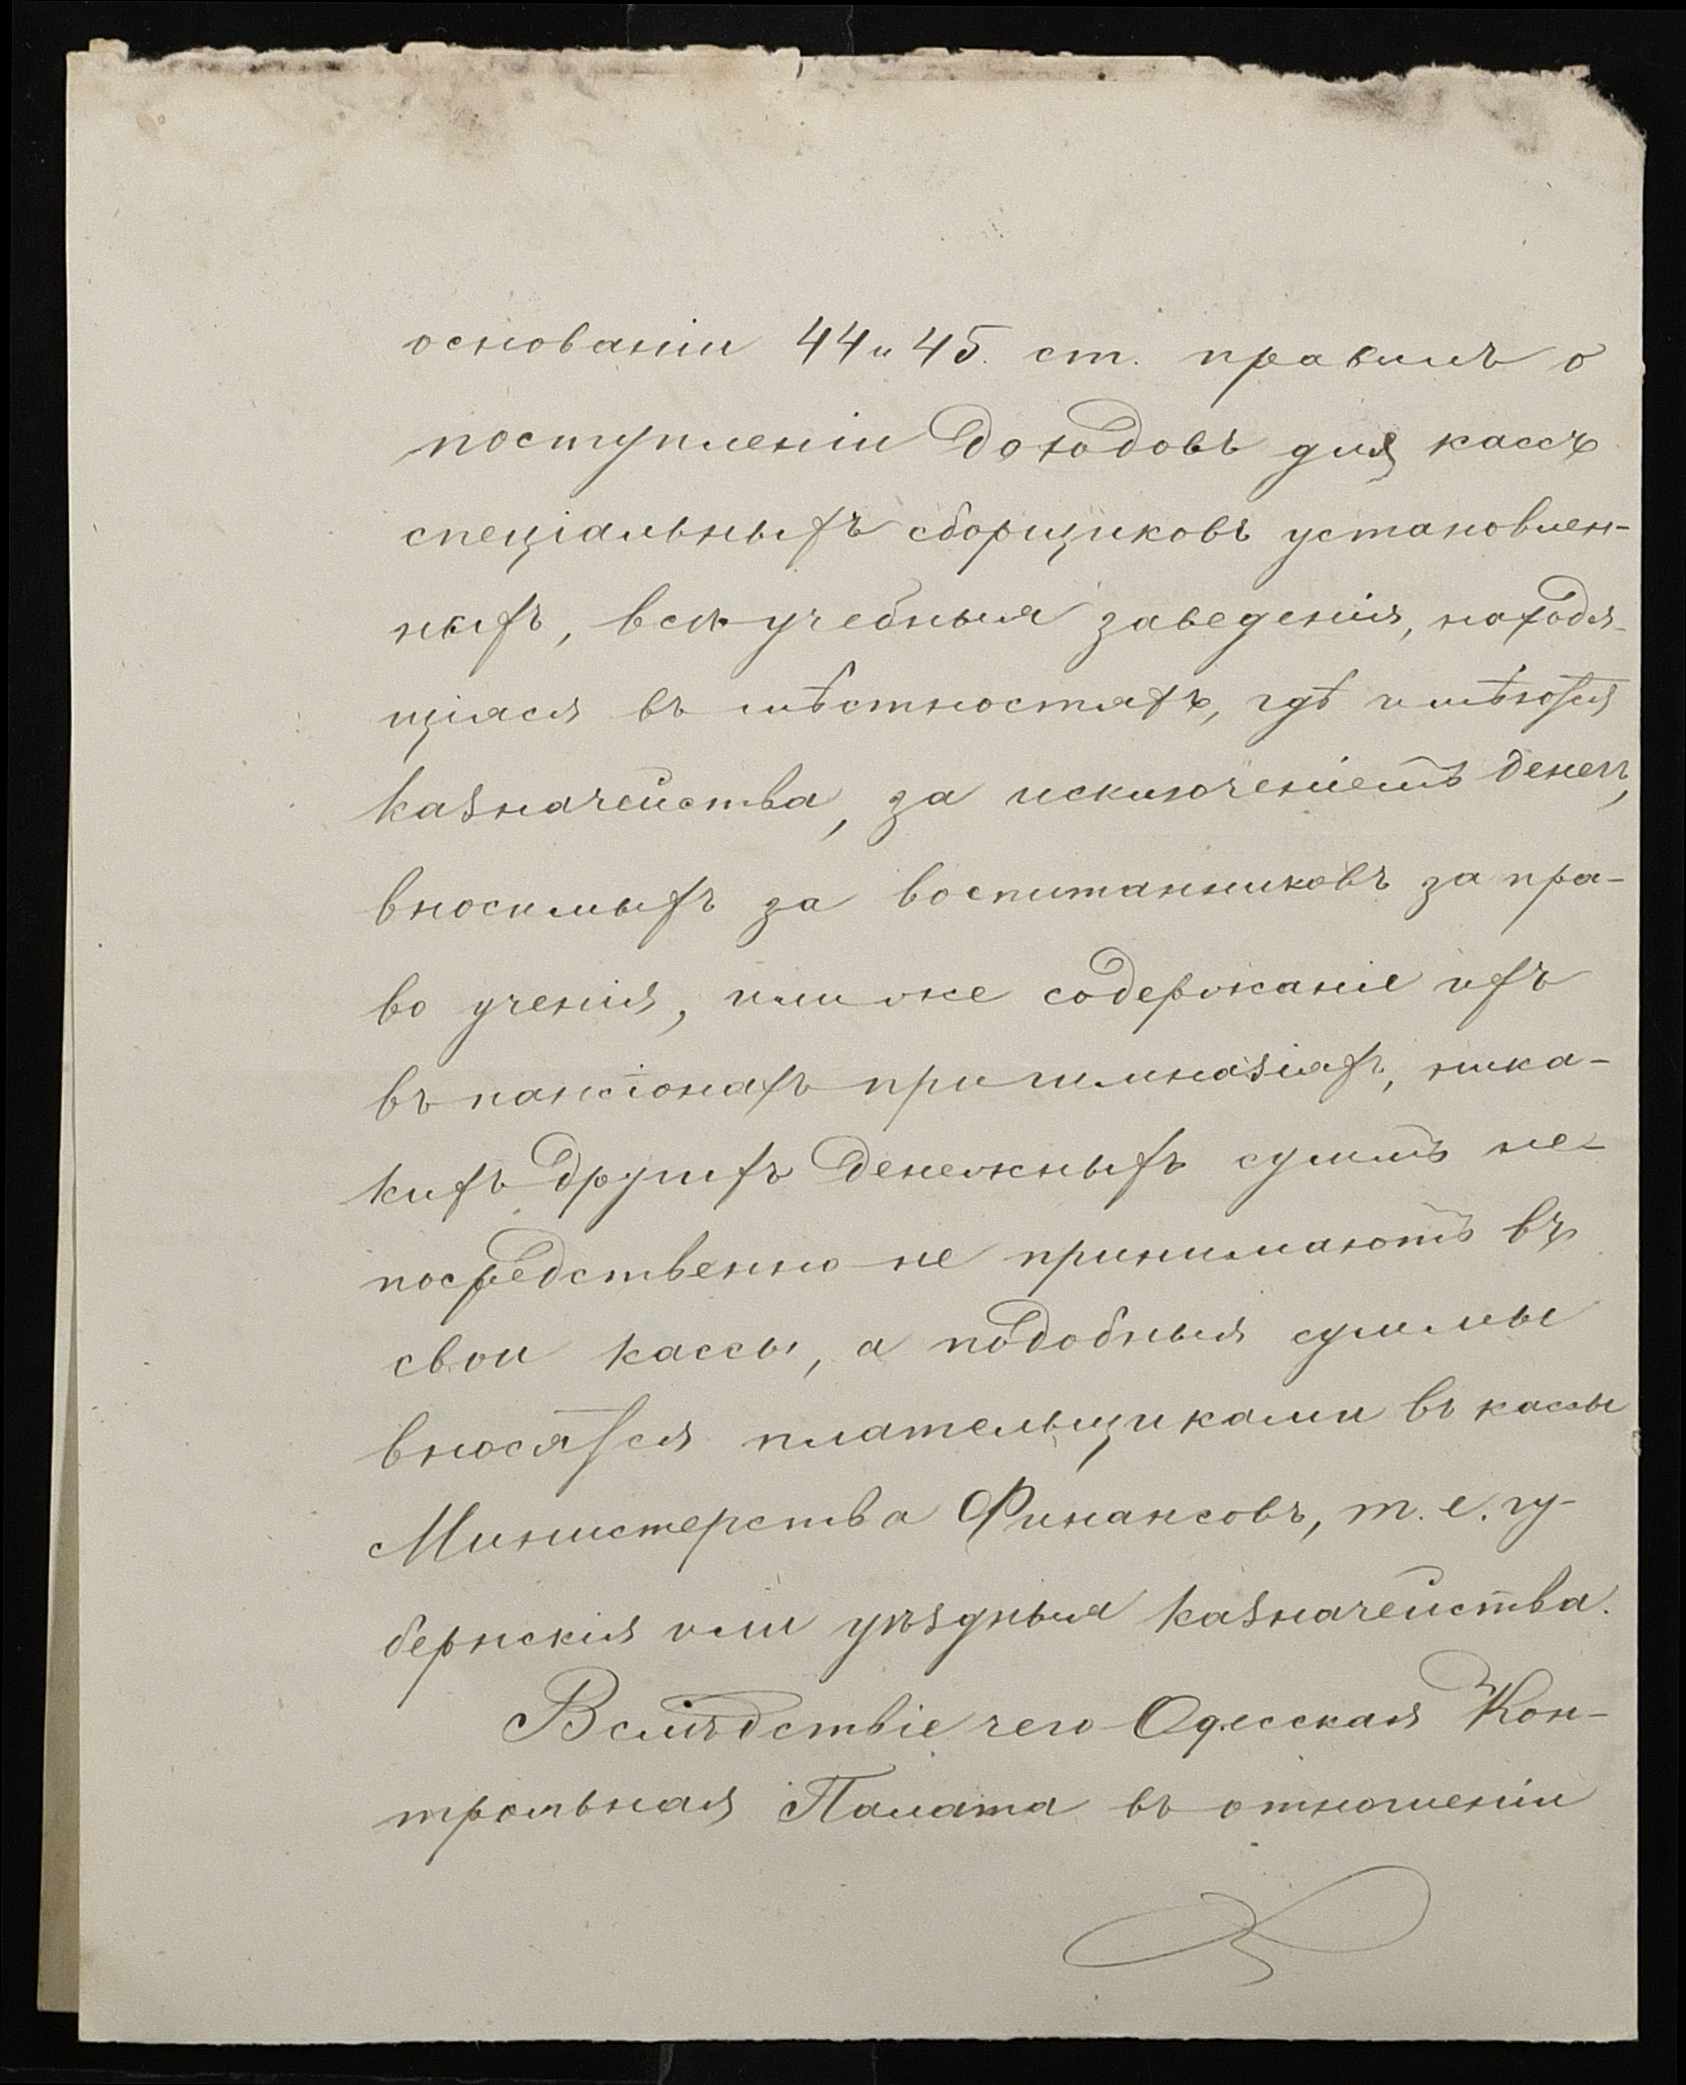 основаніи 44 и 45. ст. правилъ о
поступленіи доходовъ для кассъ
спеціальныхъ сборщиковъ установлен-
ныхъ, всѣ учебныя заведенія, находя-
щіяся въ мѣстностяхъ, гдѣ имѣются
казначейства, за исключеніемъ денегъ,
вносимыхъ за воспитанниковъ за пра-
во ученія, или же содержаніе ихъ
въ пансіонахъ при гимназіяхъ, ника-
кихъ другихъ денежныхъ суммъ не-
посредственно не принимаютъ въ
свои кассы, а подобныя суммы
вносятся плательщиками въ кассы
Министерства Финансовъ, т. е. гу-
бернскія или уѣздныя казначейства.
Вслѣдствіе чего Одесская Кон-
трольная Палата въ отношеніи